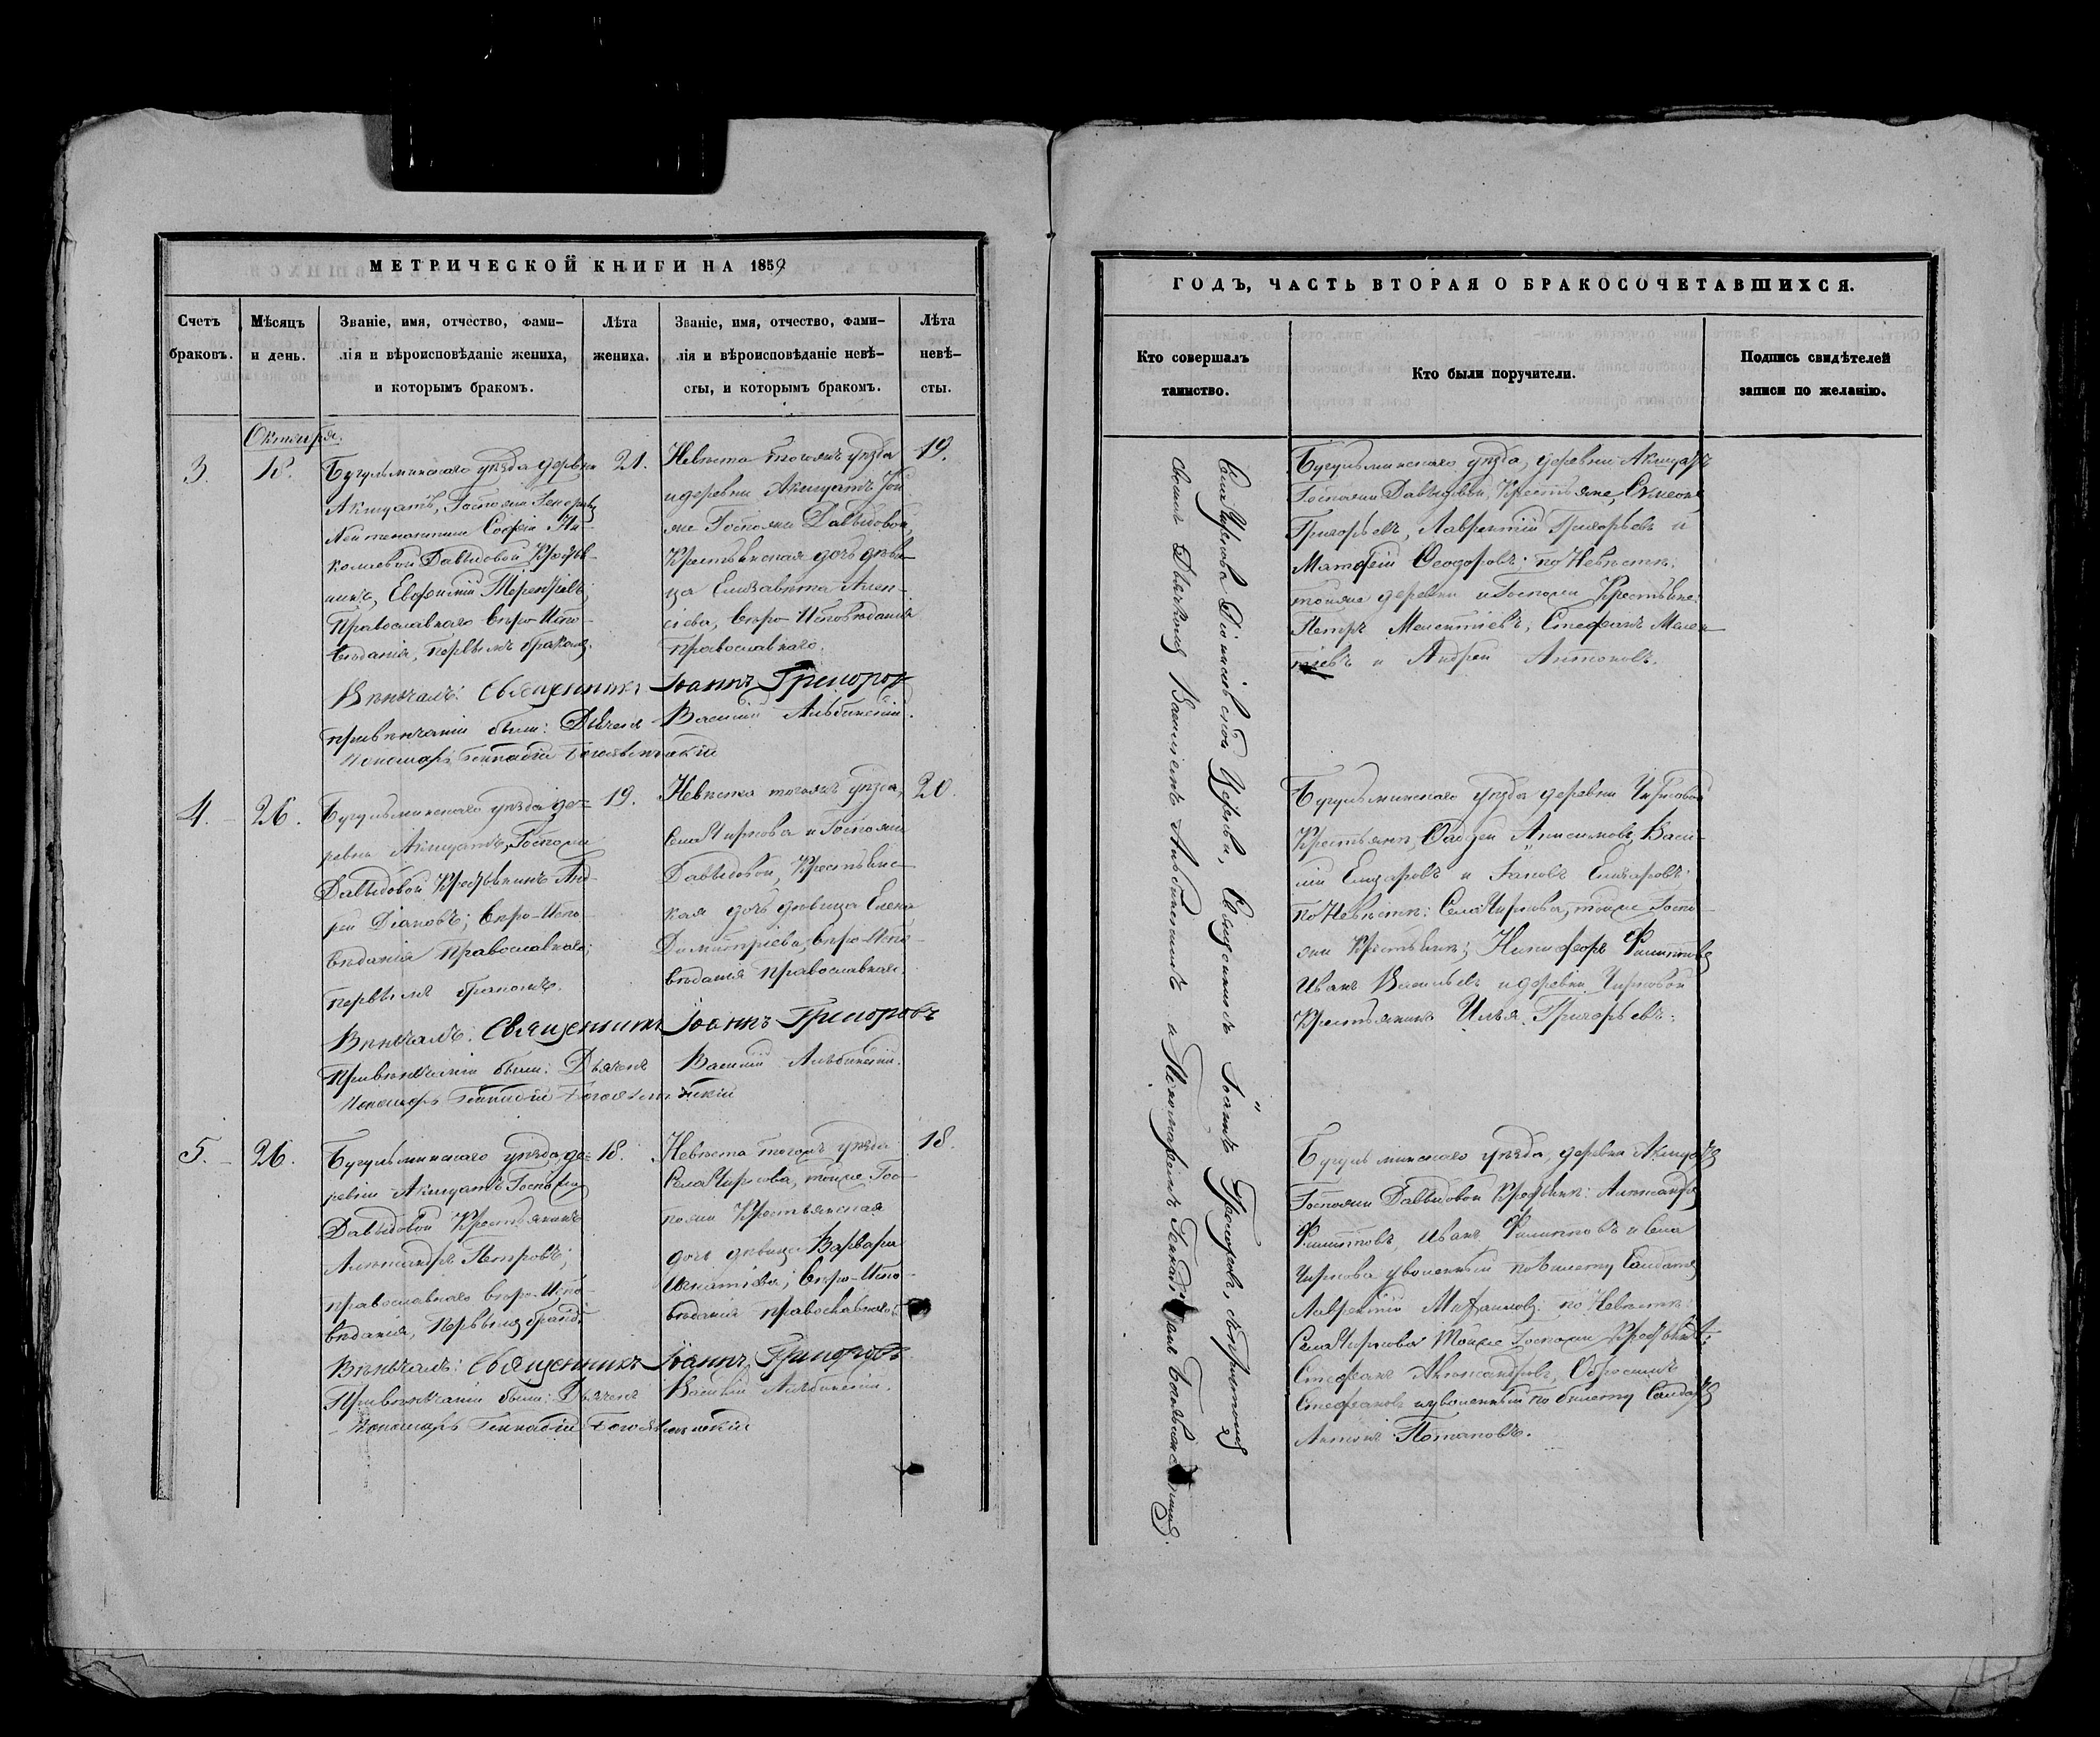 МЕТРИЧЕСКОЙ КНИГИ НА 1859
Счетъ браковъ.
Мѣсяцъ и день.
Званіе, имя, отчество, фами-
лія и вѣроисповѣданіе жениха,
и которымъ бракомъ.
Лѣта жениха.
Званіе, имя, отчество, фами-
лія и вѣроисповѣданіе невѣ-
сты, и которымъ бракомъ.
Лѣта невѣ-
сты.
Октября.
3.
18.
Бугульминскаго уѣзда деревни
Госпожи
Софіи Ни-
колаевой Давыдовой Крестья-
нинъ, Евфимій
Православнаго вѣро-Испо-
вѣданія, первымъ бракомъ.
21.
Невѣста тогожъ уѣзда
и деревни
же Госпожи Давыдовой,
Крестьянская дочь дѣви-
ца Елизавета Алек-
сіева, вѣро-Исповѣданія
православнаго.
19.
Вѣнчалъ: Священникъ Іоаннъ Григоровъ
При вѣнчаніи были: Дьячекъ Василій Альбинскій.
Пономарь Геннадій Богоявленскій
4.
26.
Бугульминскаго уѣзда де-
ревни Госпожи
Давыдовой Крестьянинъ Анд-
рей вѣро-Испо-
вѣданія Православнаго;
первымъ бракомъ.
19.
Невѣста тогожъ уѣзда,
Села Чиркова и Госпожи
Давыдовой, Крестьянс-
кая дочь дѣвица Елена
Димитріева, вѣро-Испо-
вѣданія православнаго.
20.
Вѣнчалъ: Священникъ Іоаннъ Григоровъ
При вѣнчаніи были: Дьячекъ Василій Альбинскій.
Пономарь Геннадій Богоявленскій
5.
26.
Бугульминскаго уѣзда, де-
ревни Госпожи
Давыдовой Крестьянинъ
Александръ Петровъ;
православнаго вѣро-Испо-
вѣданія, первымъ бракомъ.
18.
Невѣста тогожъ уѣзда
Села Чиркова, тойже Гос-
пожи Крестьянская
дочь дѣвица Варвара
Игнатіева; вѣро-Испо-
вѣданія православнаго.
18.
Вѣнчалъ: Священникъ Іоаннъ Григоровъ
При вѣнчаніи были: Дьячекъ Василій Альбинскій.
Пономарь Геннадій Богоявленскій
ГОДЪ, ЧАСТЬ ВТОРАЯ О БРАКОСОЧЕТАВШИХСЯ.
Кто совершалъ
таинство.
Кто были поручители.
Подпись свидѣтелей
записи по желанію.
Села Чиркова Церкви, Священникъ Іоаннъ Григоровъ, съ причтомъ
своимъ Дьячкомъ Василіемъ Альбинскимъ и Пономаремъ Геннадіемъ Богоявленскимъ.
Бугульминскаго уѣзда, деревни
Госпожи Давыдовой, Крестьяне, Симеонъ
Григорьевъ, Лаврентій Григорьевъ и
Матфей Феодоровъ; по Невѣстѣ:
тойже деревни и Госпожи Крестьяне:
Петръ Мелентіевъ, Стефанъ Мелен-
тіевъ и Андрей Антоновъ.
Бугульминскаго уѣзда деревни Чирковой
Крестьяне, Фаддей Анисимовъ, Васи-
лій Елизаровъ и Іаковъ Елизаровъ;
по Невѣстѣ: Села Чиркова, тойже Госпо-
жи Крестьяне; Никифоръ Филипповъ
Иванъ Васильевъ и деревни Чирковой
Крестьянинъ Илья Григорьевъ.
Бугульминскаго уѣзда, деревни
Госпожи Давыдовой Крестьяне: Александръ
Филипповъ, Иванъ Филипповъ и Села
Чиркова уволенный по билету Солдатъ
Лаврентій по Невѣстѣ:
Села Чиркова тойже Госпожи Крестьяне:
Стефанъ Александровъ,
Стефановъ и уволенный по билету Солдатъ
Антонъ Потаповъ.